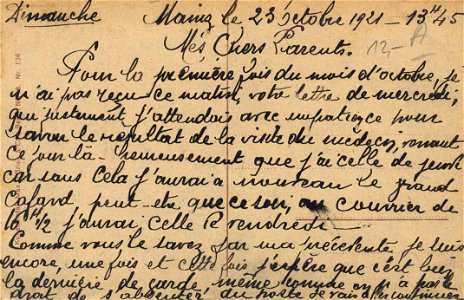 Dimanche Mainz le 23 Octobre 1921 - 13H45
Mes Chers Parents. 12,- A
Pour la première fois du mois d'octobre, je
n'ai pas reçu ce matin, votre lettre de mercredi,
qui justement j'attendais avec impatience pour
savoir le résultat de la visite du médecin, venant
ce jour là - heureusement que j'ai celle de jeudi
car sans cela j'aurai à nouveau le grand
Cafard, peut-être que ce soir, au courrier de
16H1/2 j'aurai celle de vendredi.
Comme vous le savez par ma précédente, je suis
encore, une fois et cette fois j'espère que c'est bien
la dernière, de garde, même comme on n'a pas le
droit de s'absenter du poste
Nr. 136